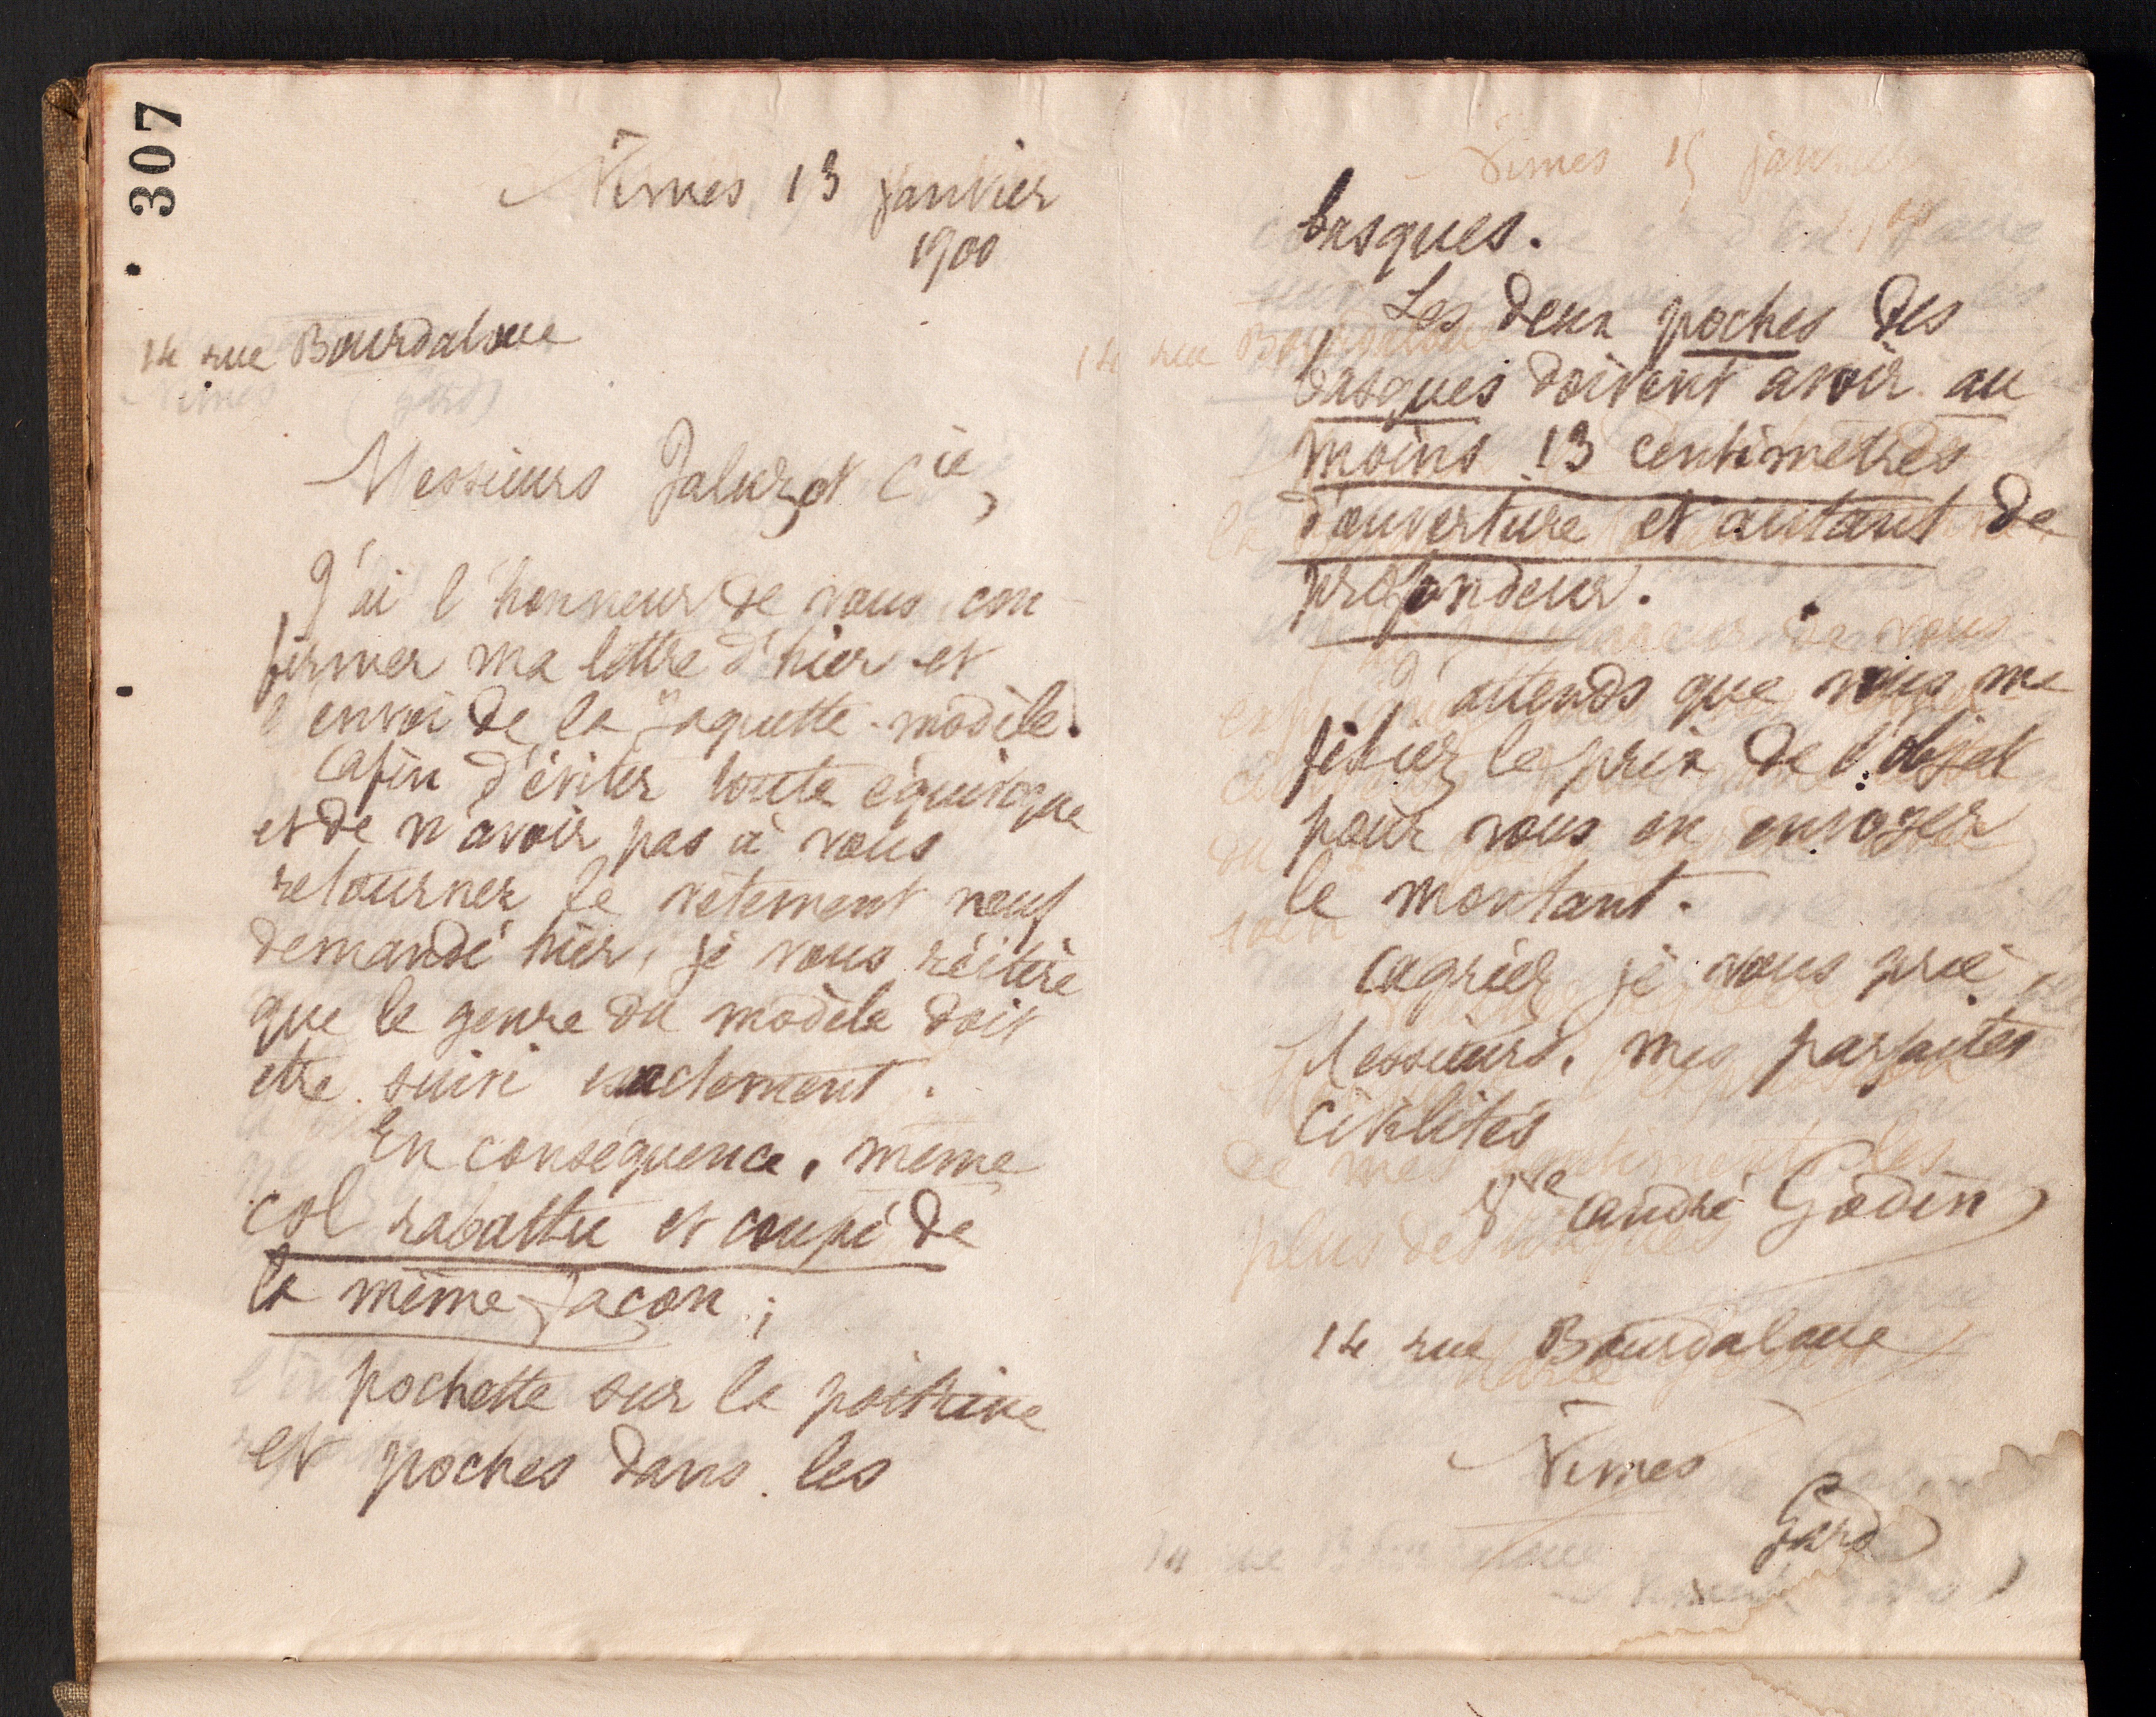 307
Nimes 13 Janvier
1900
14 rue Bourdaloue
Nimes (Gard)
Messieurs Jaluzot Cie,
J'ai l'honneur de vous con-
firmer ma lettre d'hier et
l'envoi de la Jaquette-modèle.
Afin d'éviter toute équivoque
et de n'avoir pas à vous
retourner le vêtement neuf
demandé hier, je vous réitère
que le genre du modèle doit
être suivi exactement.
En conséquence, même
col rabattu et coupé de
la même façon ;
pochette sur la poitrine
et poches dans les
basques.
Les deux poches des
basques doivent avoir au
moins 13 centimètres
d'ouverture et autant de
profondeur.
J'attends que vous me
fixiez le prix de l'objet
pour vous en envoyer
le montant.
Agréez je vous prie,
Messieurs, mes parfaites
civilités
Vve André Godin
14 rue Bourdaloue
Nimes
Gard